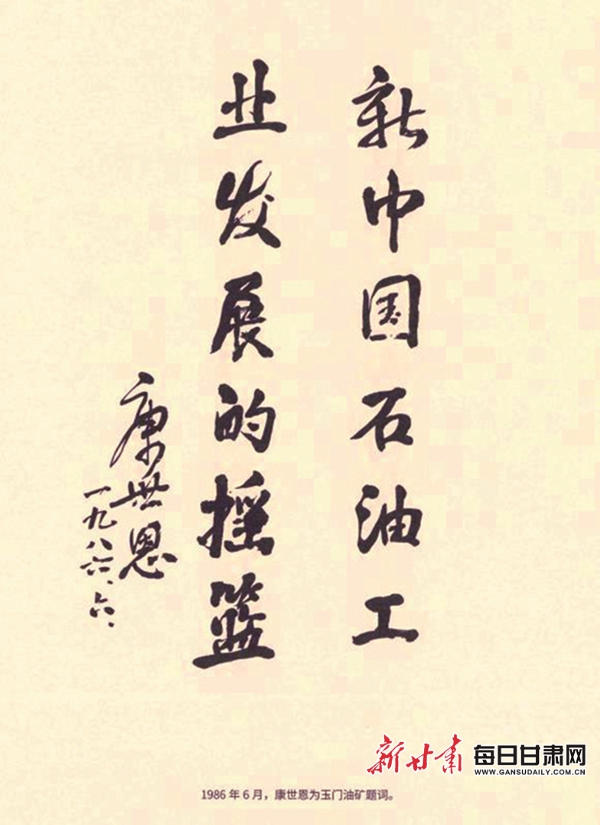 新中国石油工
业发展的摇篮
康世恩
一九八六、六、
新甘肃
每日甘肃网
WWW.GANSUDAILY.COM.CN
1986年6月，康世恩为玉门油矿题词。